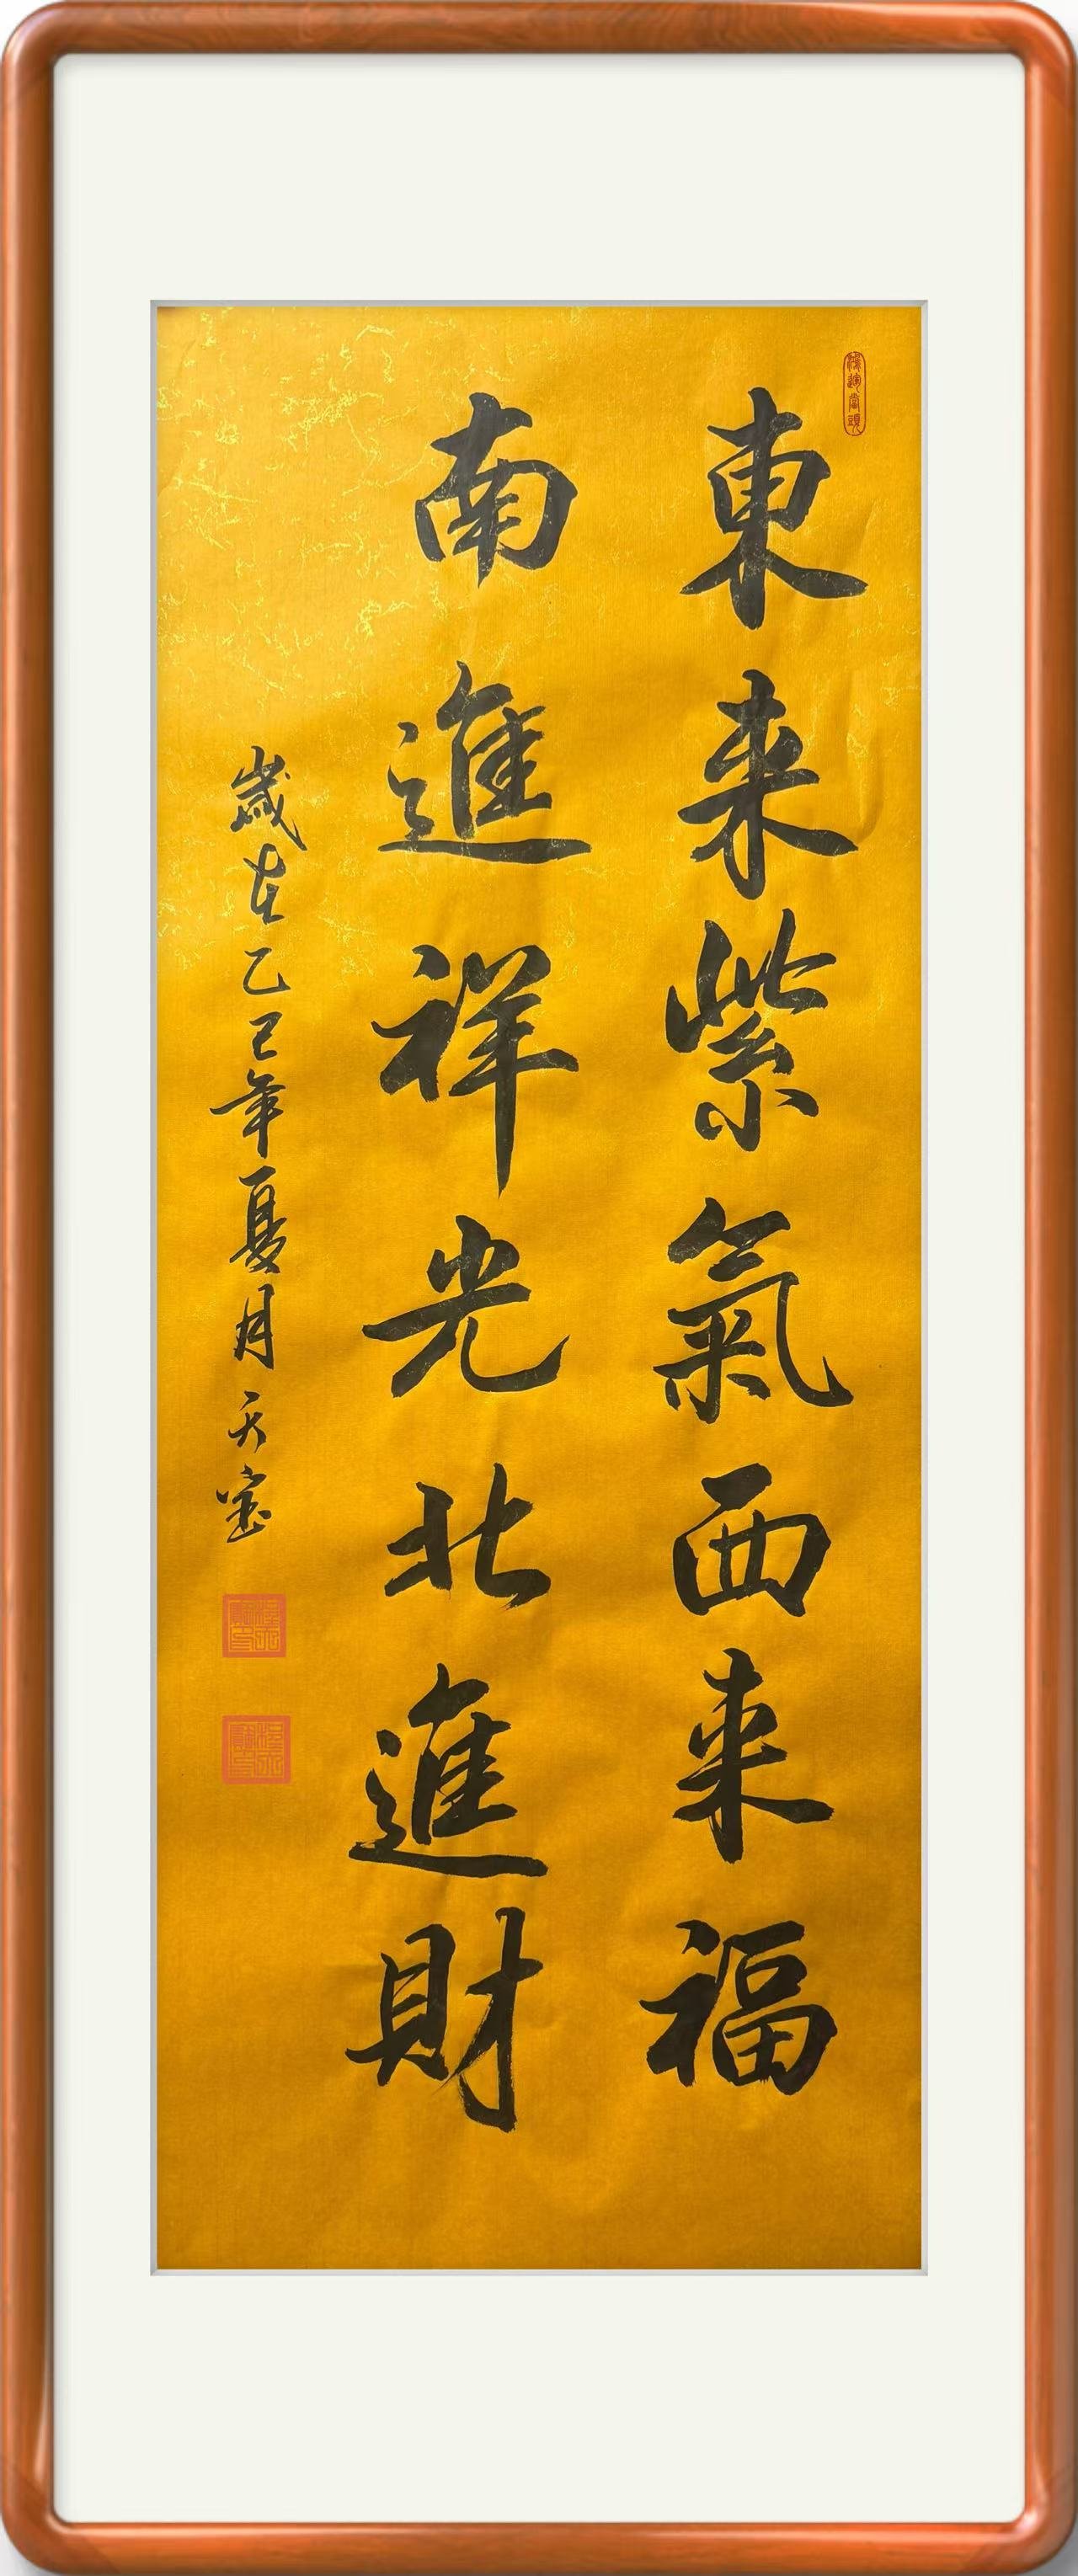 鴻運當頭
東来紫氣西来福
南進祥光北進財
歲在乙巳年夏月天寳